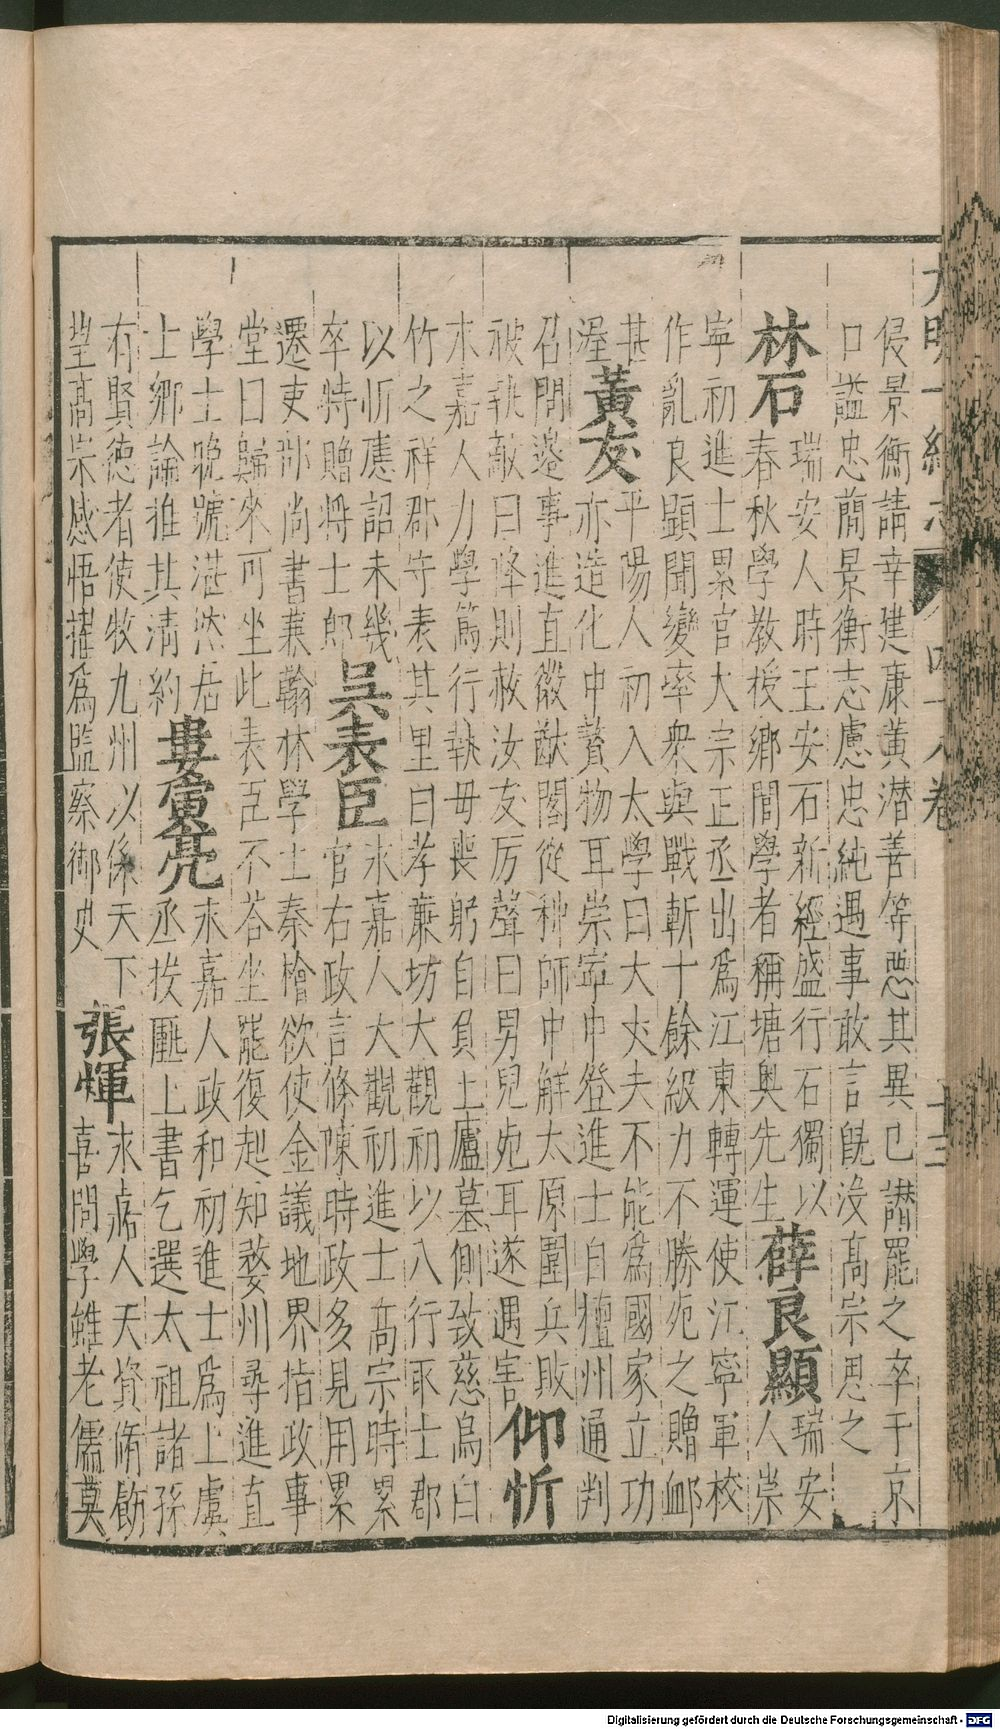 大明一統志 四十八卷 十三
侵景衡請幸建康黃潛善等惡其異己譖罷之卒于京
口謚忠簡景衡志慮忠純遇事敢言旣沒髙宗思之
林石
瑞安人時王安石新經盛行石獨以
春秋學敎授鄉閭學者稱塘奥先生
薛良顯
瑞安
人崇
寧初進士累官大宗正丞出爲江東轉運使江寧軍校
作亂良顯聞變率衆與戰斬十餘級力不勝死之贈卹
甚
渥
黃友
平陽人初入太學曰大丈夫不能爲國家立功
亦造化中贅物耳崇寧中登進士自檀州通判
召問邉事進直徽猷閣從种師中觧太原圍兵敗
被執敵曰降則赦汝友厉聲曰男兒死耳遂遇害
仰忻
永嘉人力學篤行執母喪躬自負土廬墓側致慈烏白
竹之祥郡守表其里曰孝亷坊大觀初以八行取士郡
以忻應詔未幾
卒特贈將士郎
吳表臣
永嘉人大觀初進士髙宗時累
官右政言條陳時政多見用累
遷吏部尚書兼翰林學士秦檜欲使金議地界指政事
堂曰歸來可坐此表臣不荅坐罷復起知婺州尋進直
學士晚號湛然居
上鄉論推其淸約
婁寅亮
永嘉人政和初進士爲上虞
丞投匭上書乞選太祖諸孫
有賢德者使牧九州以係天下
望髙宗感悟擢爲監察御史
張煇
永嘉人天資脩飭
喜問學雖老儒莫
Digitalisierung gefördert durch die Deutsche Forschungsgemeinschaft - DFG